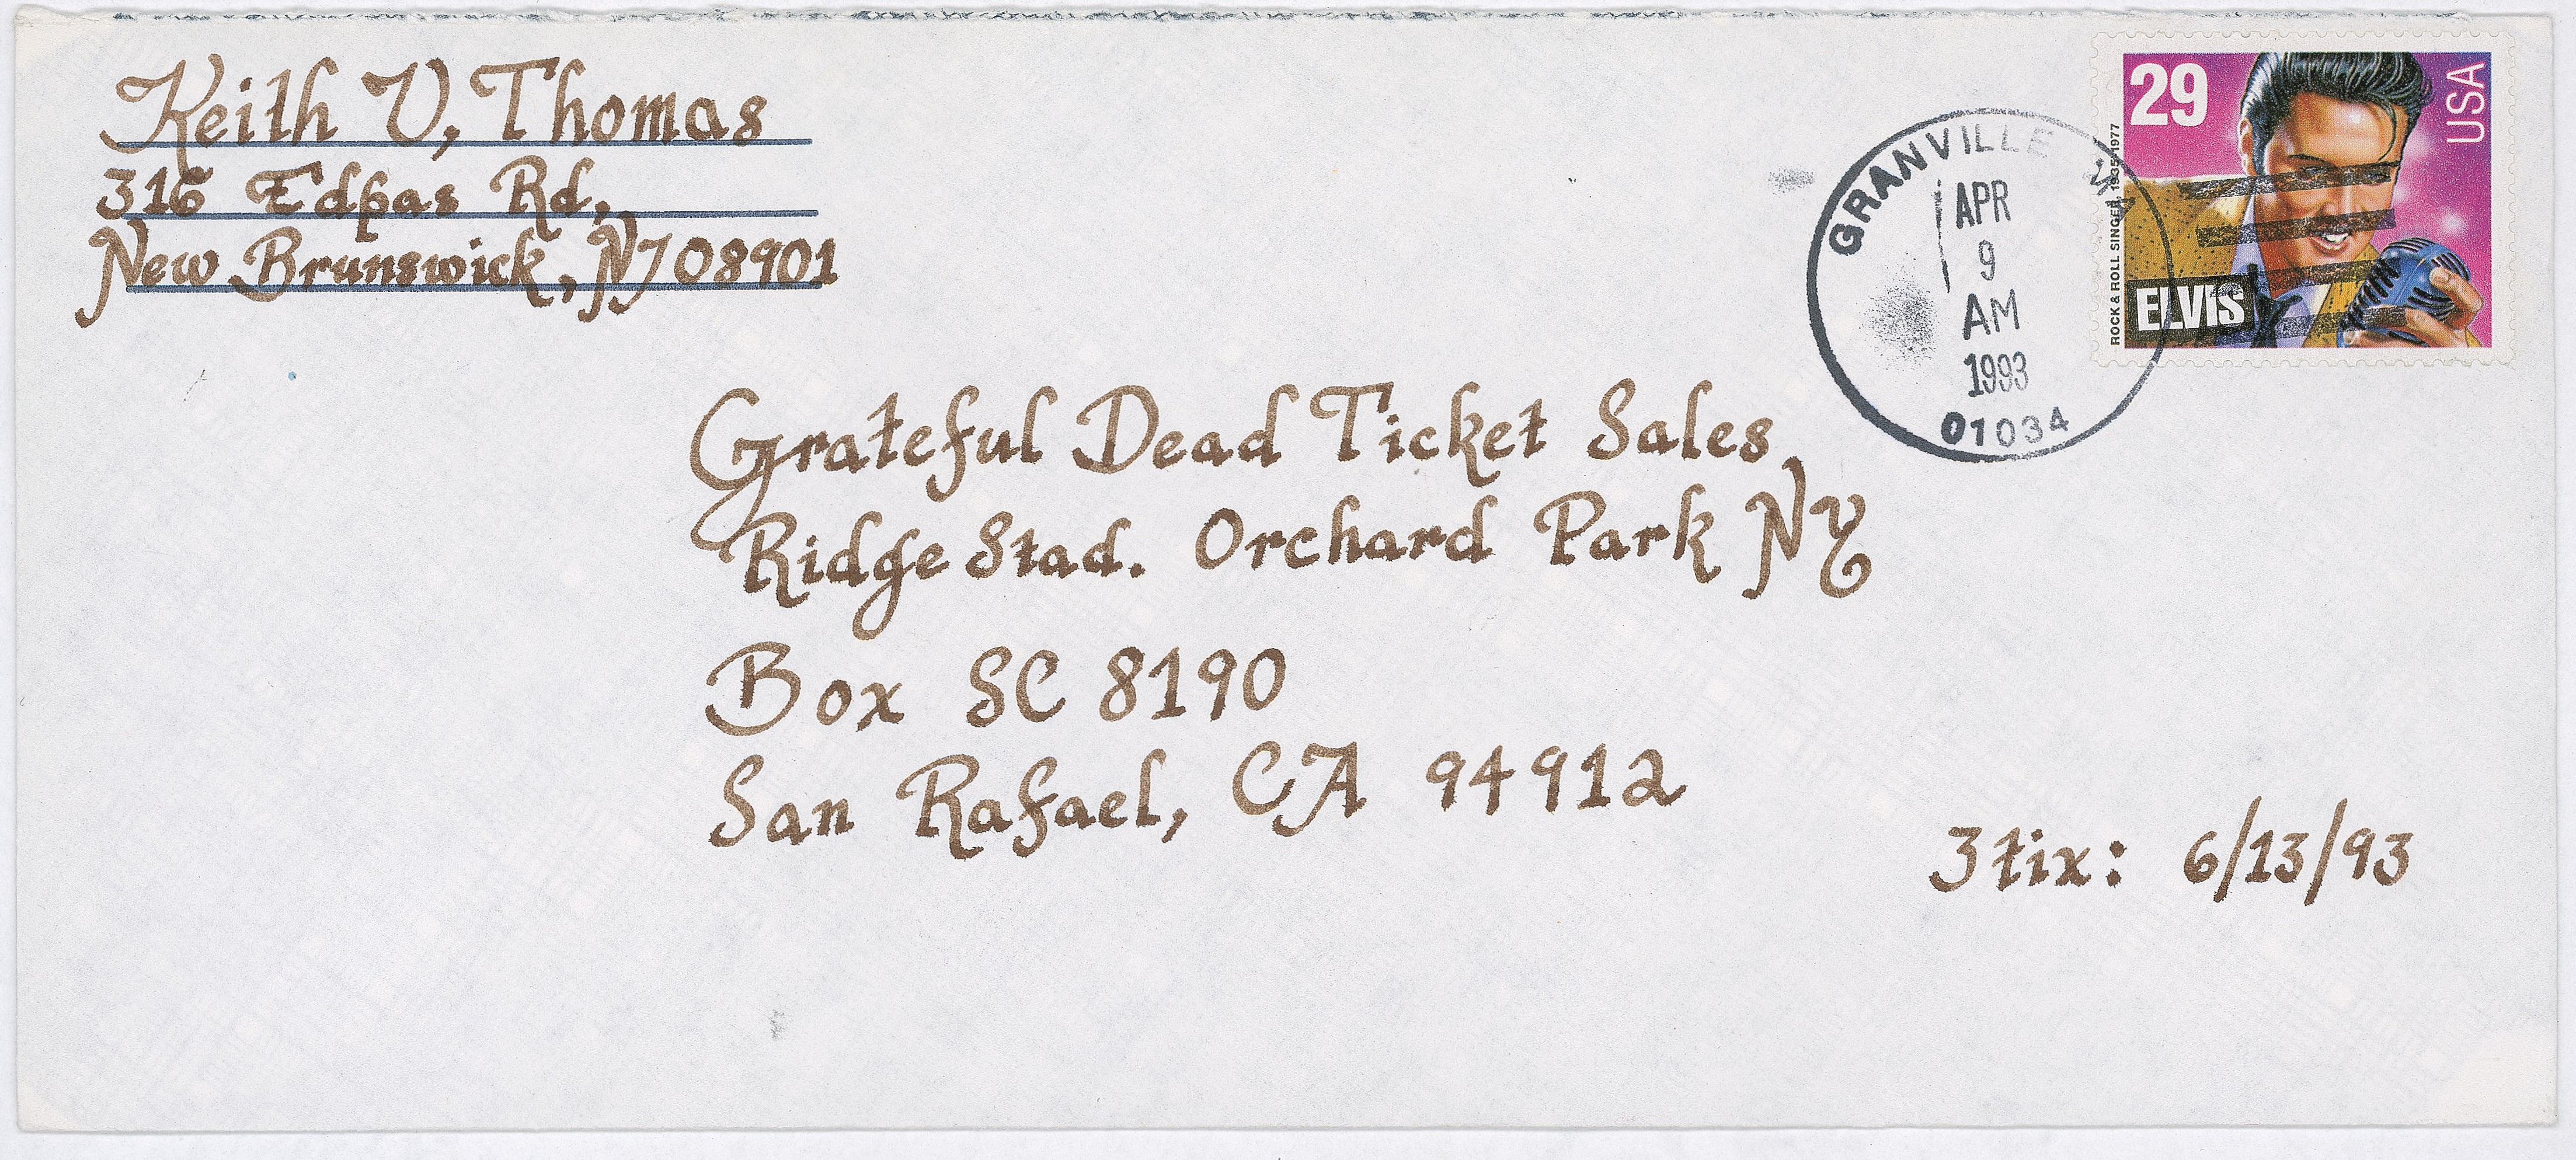 Keith V. Thomas
316 Edpas Rd.
New Brunswick, NJ 08901
GRANVILLE
APR
9
AM
1993
01034
29
USA
ELVIS
ROCK & ROLL SINGER, 1935-1977
Grateful Dead Ticket Sales,
Ridge Stad. Orchard Park NY
Box SC 8190
San Rafael, CA 94912
3 tix: 6/13/93